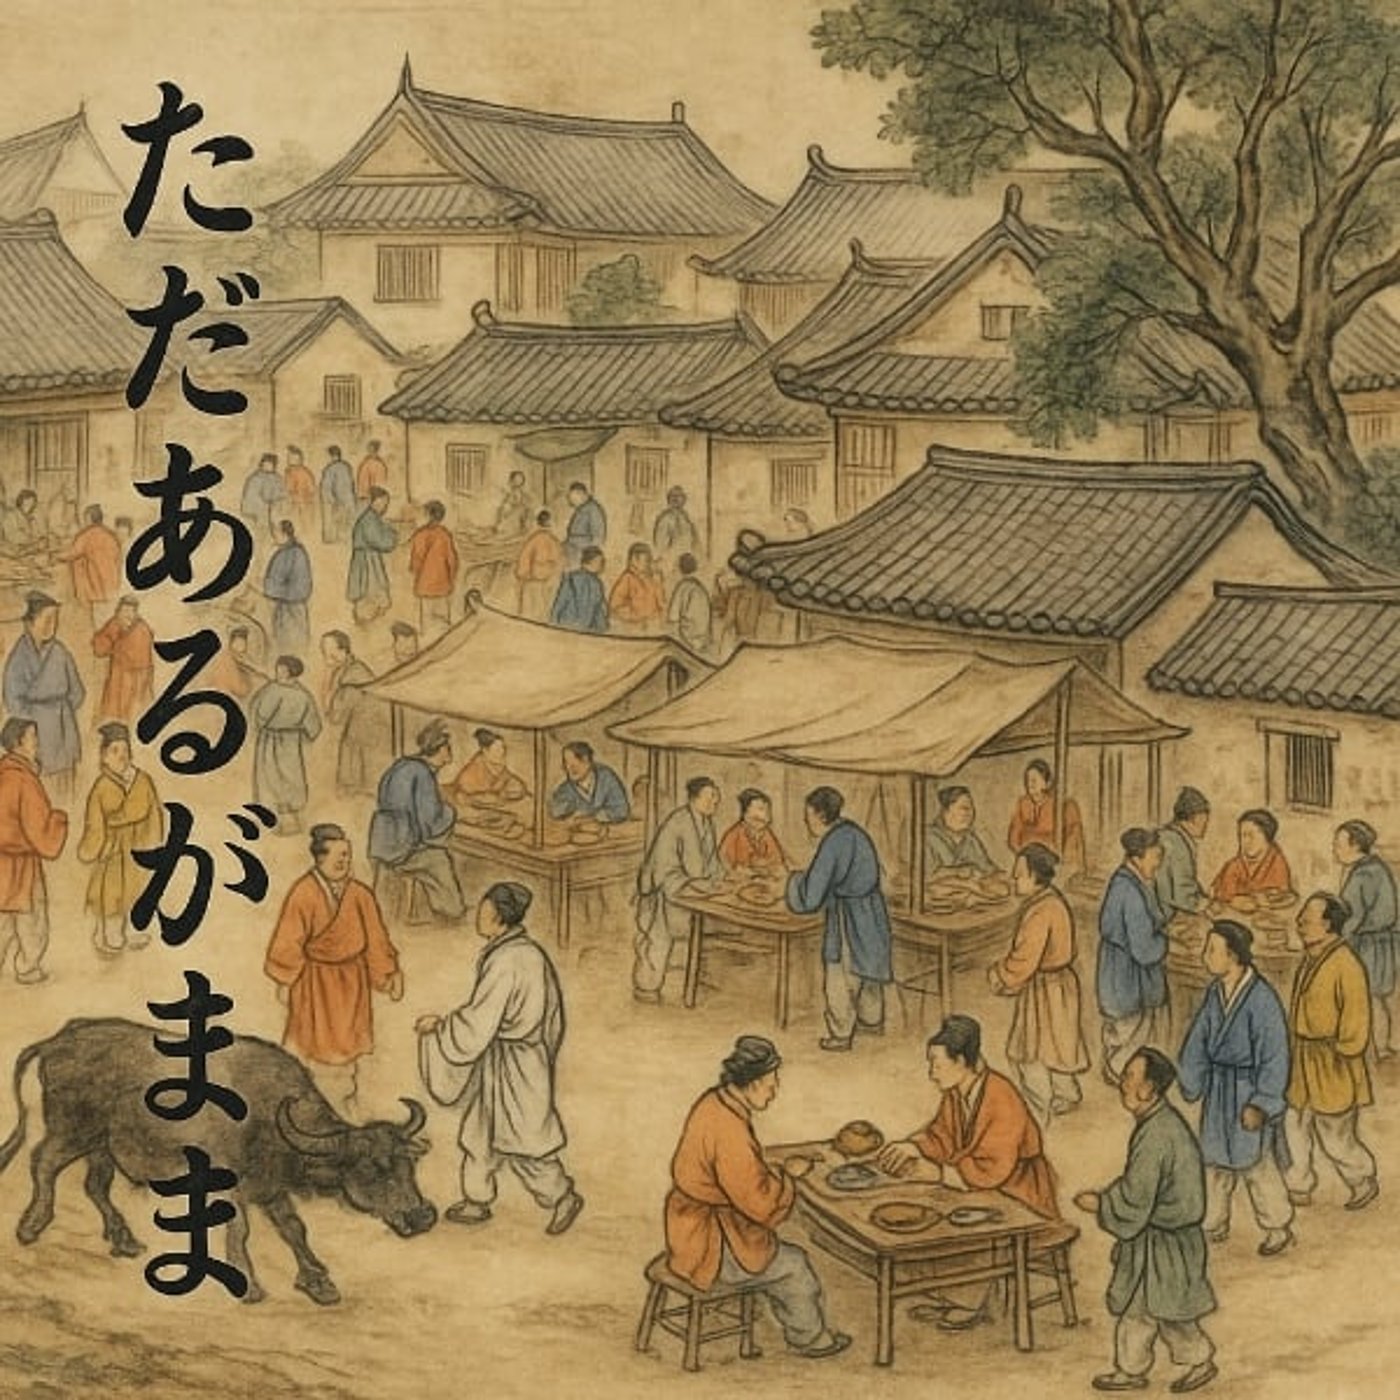 ただあるがまま